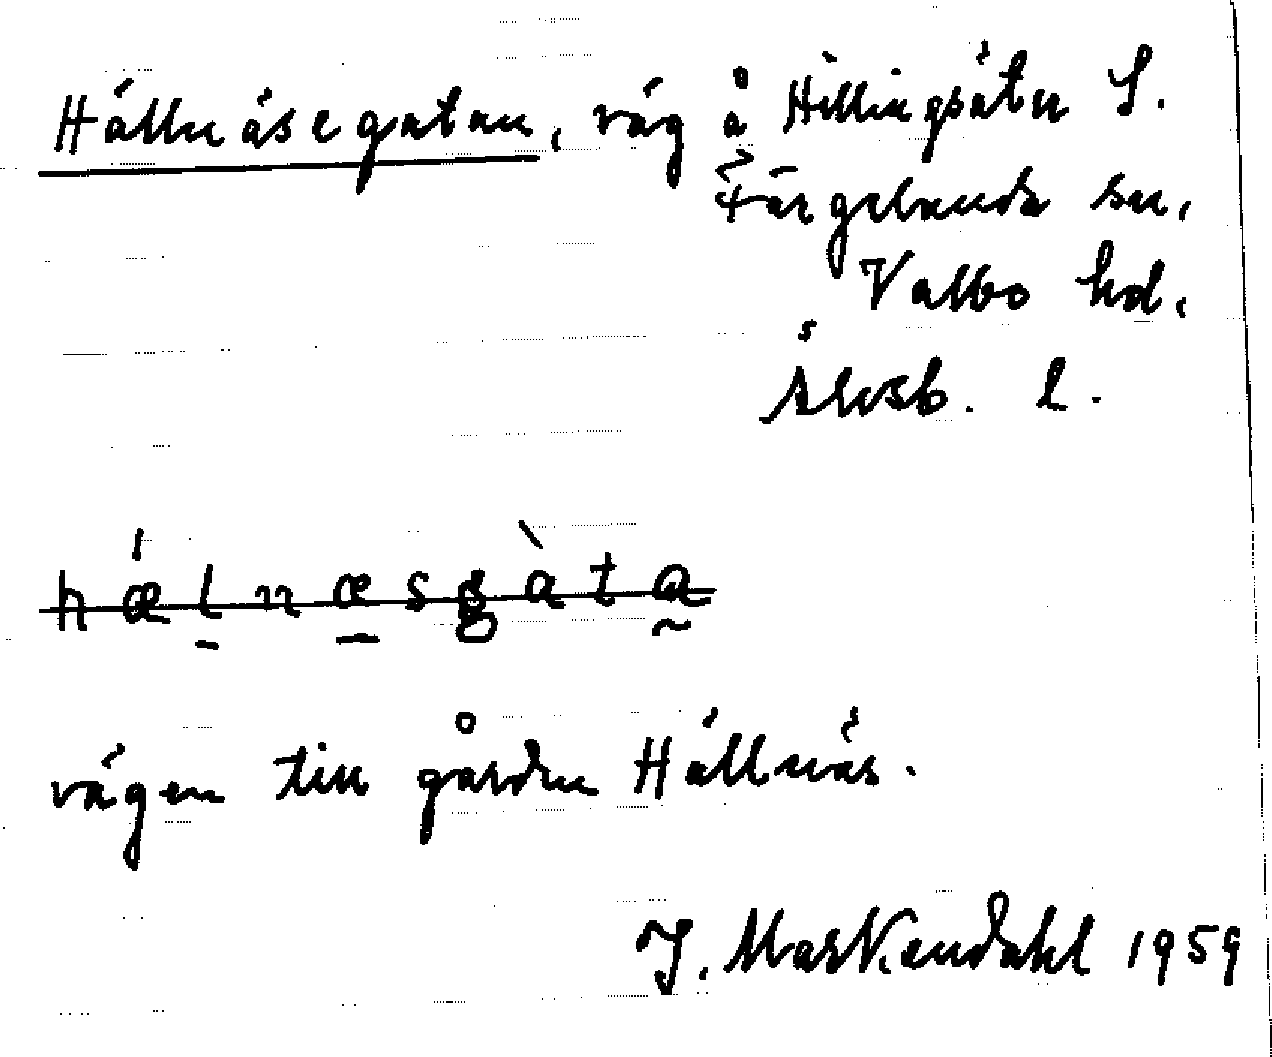 Hällnäsegatan, väg å Hillingsäter S.
Färgelanda sn,
Valbo hd.
Älvsb. l.
hælnæsgàta
vägen till gården Hällnäs.
J. Markendahl 1959